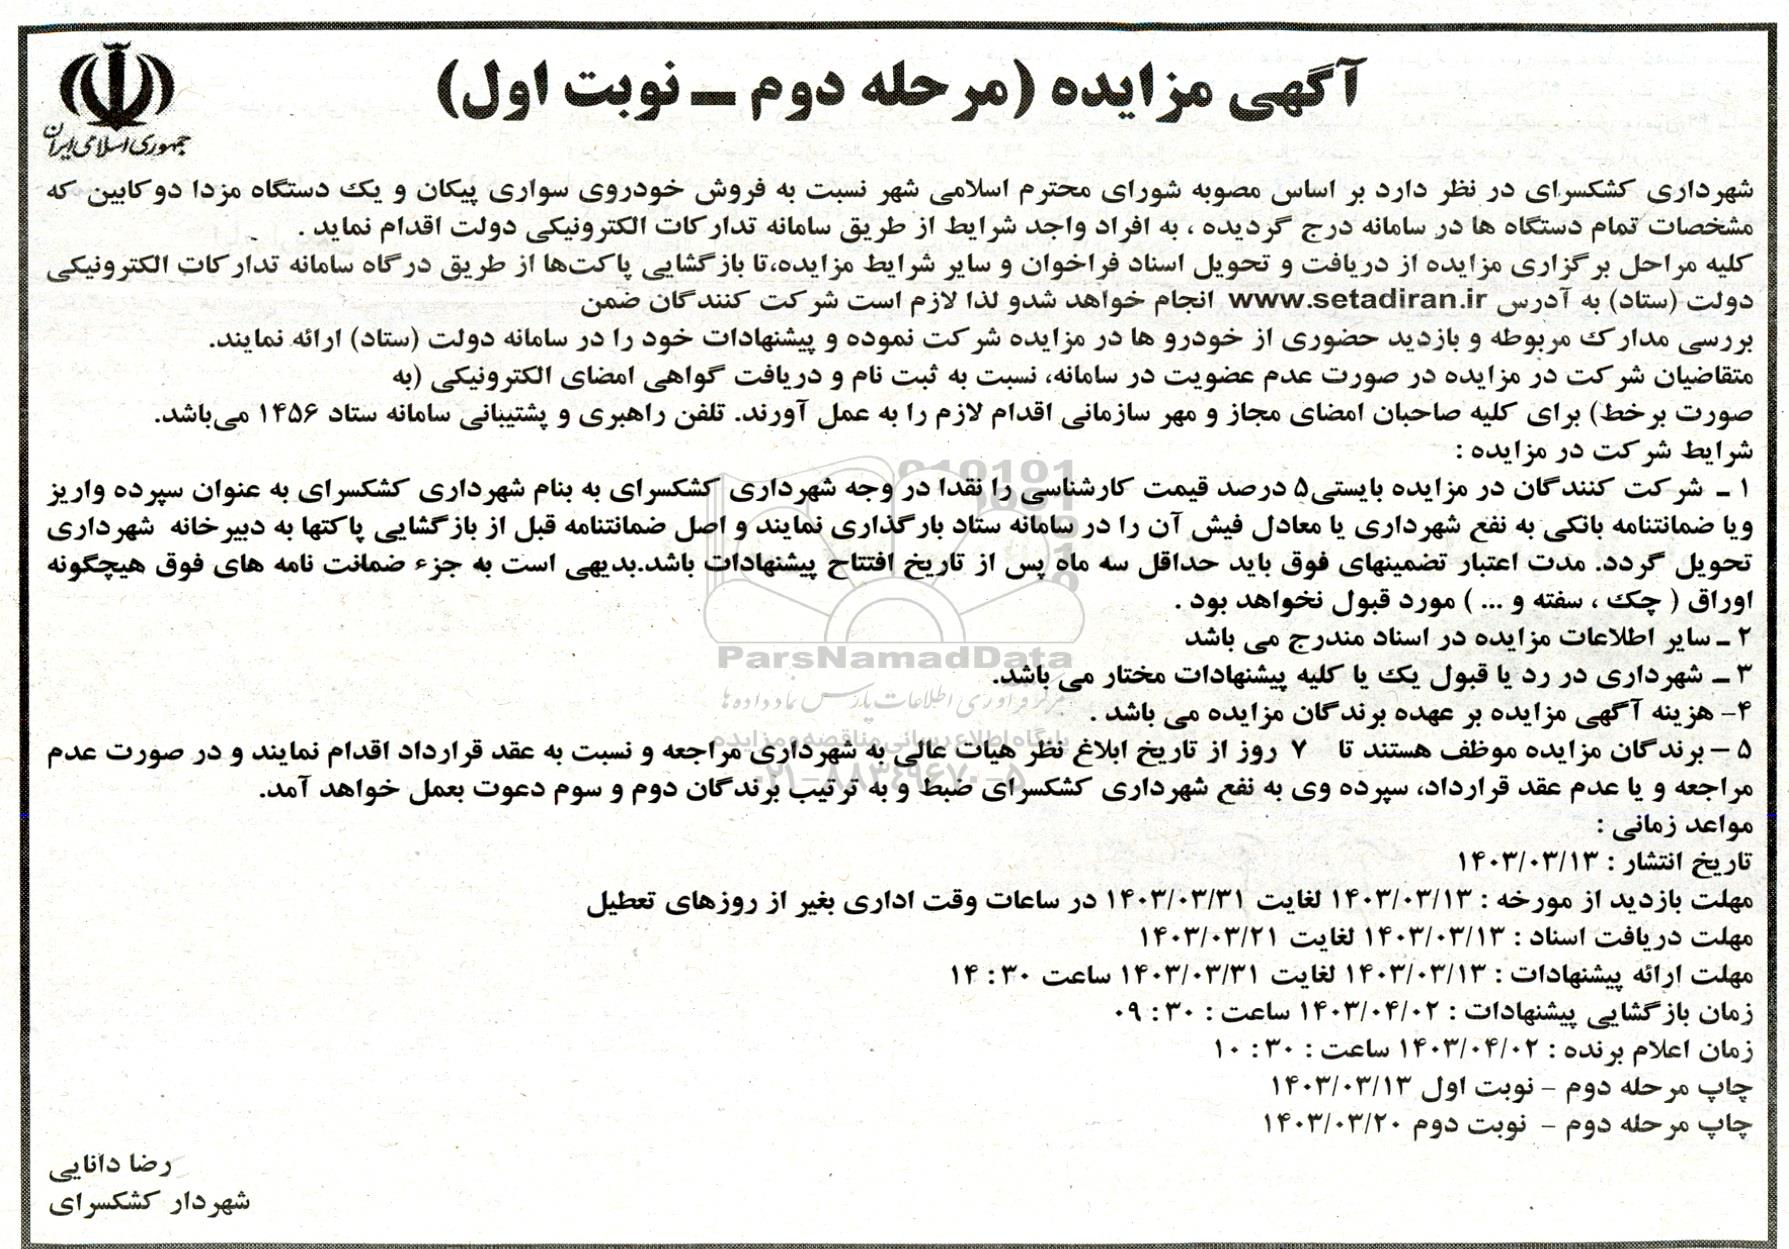 آگهی مزایده (مرحله دوم ــ نوبت اول)
جمهوری اسلامی ایران
شهرداری کشکسرای در نظر دارد بر اساس مصوبه شورای محترم اسلامی شهر نسبت به فروش خودروی سواری پیکان و یک دستگاه مزدا دوکابین که
مشخصات تمام دستگاه ها در سامانه درج گردیده ، به افراد واجد شرایط از طریق سامانه تدارکات الکترونیکی دولت اقدام نماید .
کلیه مراحل برگزاری مزایده از دریافت و تحویل اسناد فراخوان و سایر شرایط مزایده،تا بازگشایی پاکت‌ها از طریق درگاه سامانه تدارکات الکترونیکی
دولت (ستاد) به آدرس www.setadiran.ir انجام خواهد شدو لذا لازم است شرکت کنندگان ضمن
بررسی مدارک مربوطه و بازدید حضوری از خودرو ها در مزایده شرکت نموده و پیشنهادات خود را در سامانه دولت (ستاد) ارائه نمایند.
متقاضیان شرکت در مزایده در صورت عدم عضویت در سامانه، نسبت به ثبت نام و دریافت گواهی امضای الکترونیکی (به
صورت برخط) برای کلیه صاحبان امضای مجاز و مهر سازمانی اقدام لازم را به عمل آورند. تلفن راهبری و پشتیبانی سامانه ستاد ۱۴۵۶ می‌باشد.
شرایط شرکت در مزایده :
۱ ـ شرکت کنندگان در مزایده بایستی۵ درصد قیمت کارشناسی را نقدا در وجه شهرداری کشکسرای به بنام شهرداری کشکسرای به عنوان سپرده واریز
ویا ضمانتنامه بانکی به نفع شهرداری یا معادل فیش آن را در سامانه ستاد بارگذاری نمایند و اصل ضمانتنامه قبل از بازگشایی پاکتها به دبیرخانه شهرداری
تحویل گردد. مدت اعتبار تضمینهای فوق باید حداقل سه ماه پس از تاریخ افتتاح پیشنهادات باشد.بدیهی است به جزء ضمانت نامه های فوق هیچگونه
اوراق ( چک ، سفته و ... ) مورد قبول نخواهد بود .
۲ ـ سایر اطلاعات مزایده در اسناد مندرج می باشد
۳ ـ شهرداری در رد یا قبول یک یا کلیه پیشنهادات مختار می باشد.
۴- هزینه آگهی مزایده بر عهده برندگان مزایده می باشد .
۵ – برندگان مزایده موظف هستند تا ۷ روز از تاریخ ابلاغ نظر هیات عالی به شهرداری مراجعه و نسبت به عقد قرارداد اقدام نمایند و در صورت عدم
مراجعه و یا عدم عقد قرارداد، سپرده وی به نفع شهرداری کشکسرای ضبط و به ترتیب برندگان دوم و سوم دعوت بعمل خواهد آمد.
مواعد زمانی :
تاریخ انتشار : ۱۴۰۳/۰۳/۱۳
مهلت بازدید از مورخه : ۱۴۰۳/۰۳/۱۳ لغایت ۱۴۰۳/۰۳/۳۱ در ساعات وقت اداری بغیر از روزهای تعطیل
مهلت دریافت اسناد : ۱۴۰۳/۰۳/۱۳ لغایت ۱۴۰۳/۰۳/۲۱
مهلت ارائه پیشنهادات : ۱۴۰۳/۰۳/۱۳ لغایت ۱۴۰۳/۰۳/۳۱ ساعت ۳۰ : ۱۴
زمان بازگشایی پیشنهادات : ۱۴۰۳/۰۴/۰۲ ساعت : ۳۰ : ۰۹
زمان اعلام برنده : ۱۴۰۳/۰۴/۰۲ ساعت : ۳۰ : ۱۰
چاپ مرحله دوم – نوبت اول ۱۴۰۳/۰۳/۱۳
چاپ مرحله دوم – نوبت دوم ۱۴۰۳/۰۳/۲۰
رضا دانایی
شهردار کشکسرای
ParsNamadData
مرکز فرآوری اطلاعات پارس نماد داده ها
پایگاه اطلاع رسانی مناقصه و مزایده
۰۲۱-۸۸۳۴۹۶۷۰-۵